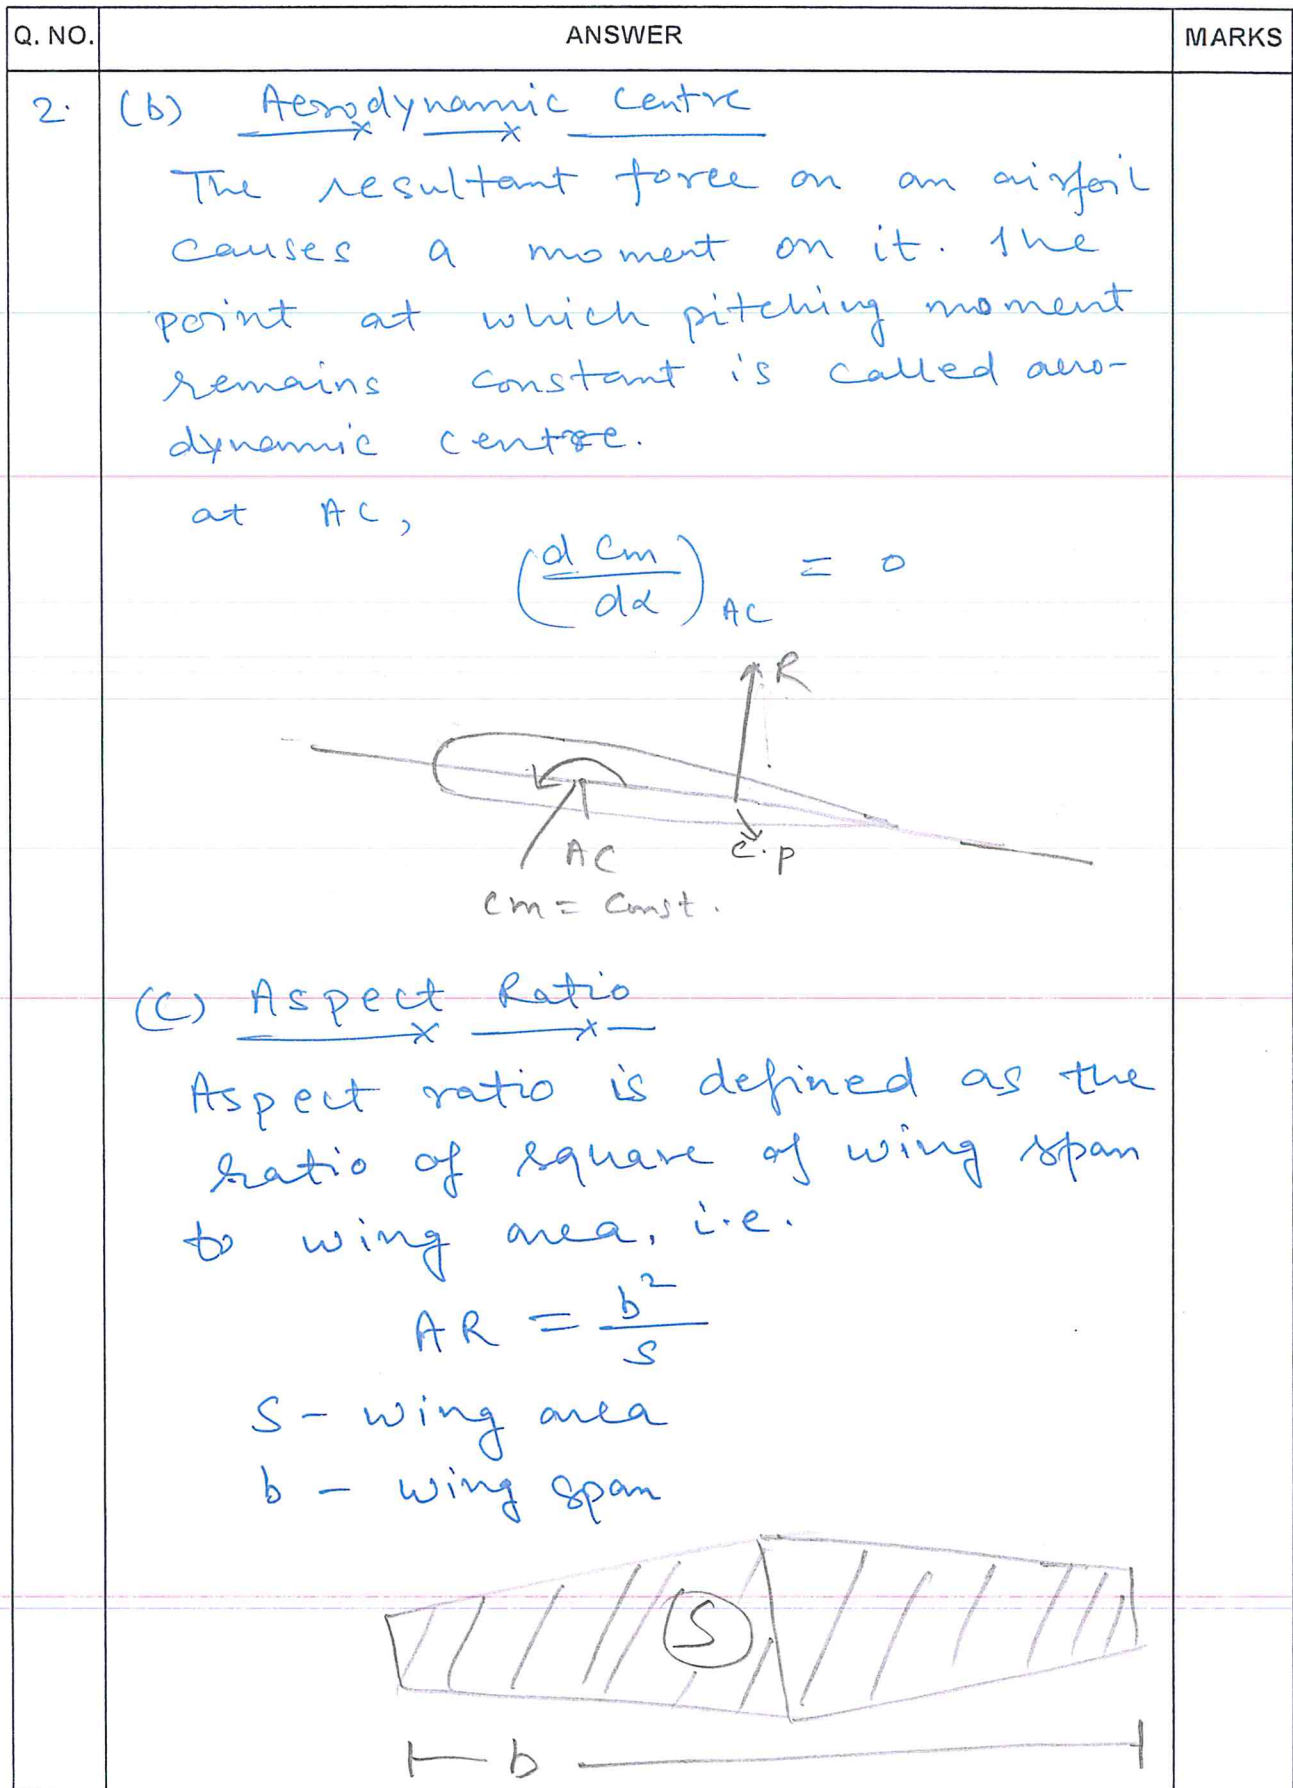 Q. NO. ANSWER MARKS
2. (b) Aerodynamic Centre
The resultant force on an airfoil
causes a moment on it. The
point at which pitching moment
remains constant is called aero-
dynamic centre.
at AC,
(d Cm / dα) AC = 0
R
AC
c.p
Cm = Const.
(C) Aspect Ratio
Aspect ratio is defined as the
ratio of square of wing span
to wing area, i.e.
AR = b² / S
S - wing area
b - wing span
S
b